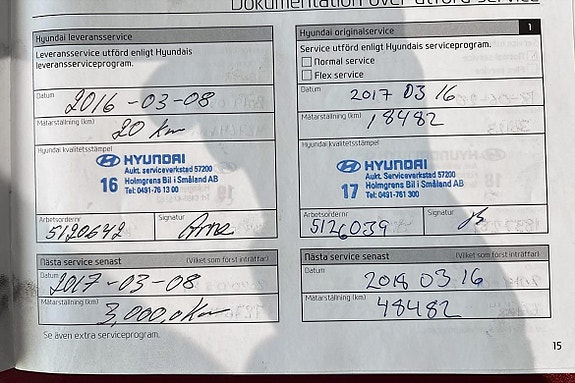 Dokumentation över utförd service
Hyundai leveransservice
Leveransservice utförd enligt Hyundais
leveransserviceprogram.
Datum
2016-03-08
Mätarställning (km)
20 km
Hyundai kvalitetsstämpel
HYUNDAI
Aukt. serviceverkstad 57200
16 Holmgrens Bil i Småland AB
Tel: 0491-76 13 00
Arbetsordernr
5120642
Signatur
Nästa service senast (Vilket som först inträffar)
Datum
2017-03-08
Mätarställning (km)
Se även extra serviceprogram.
Hyundai originalservice 1
Service utförd enligt Hyundais serviceprogram.
Normal service
Flex service
Datum
2017 03 16
Mätarställning (km)
18482
Hyundai kvalitetsstämpel
HYUNDAI
Aukt. serviceverkstad 57200
17 Holmgrens Bil i Småland AB
Tel: 0491-761 300
Arbetsordernr
5126039
Signatur
Nästa service senast (Vilket som först inträffar)
Datum
2018 03 16
Mätarställning (km)
48482
15